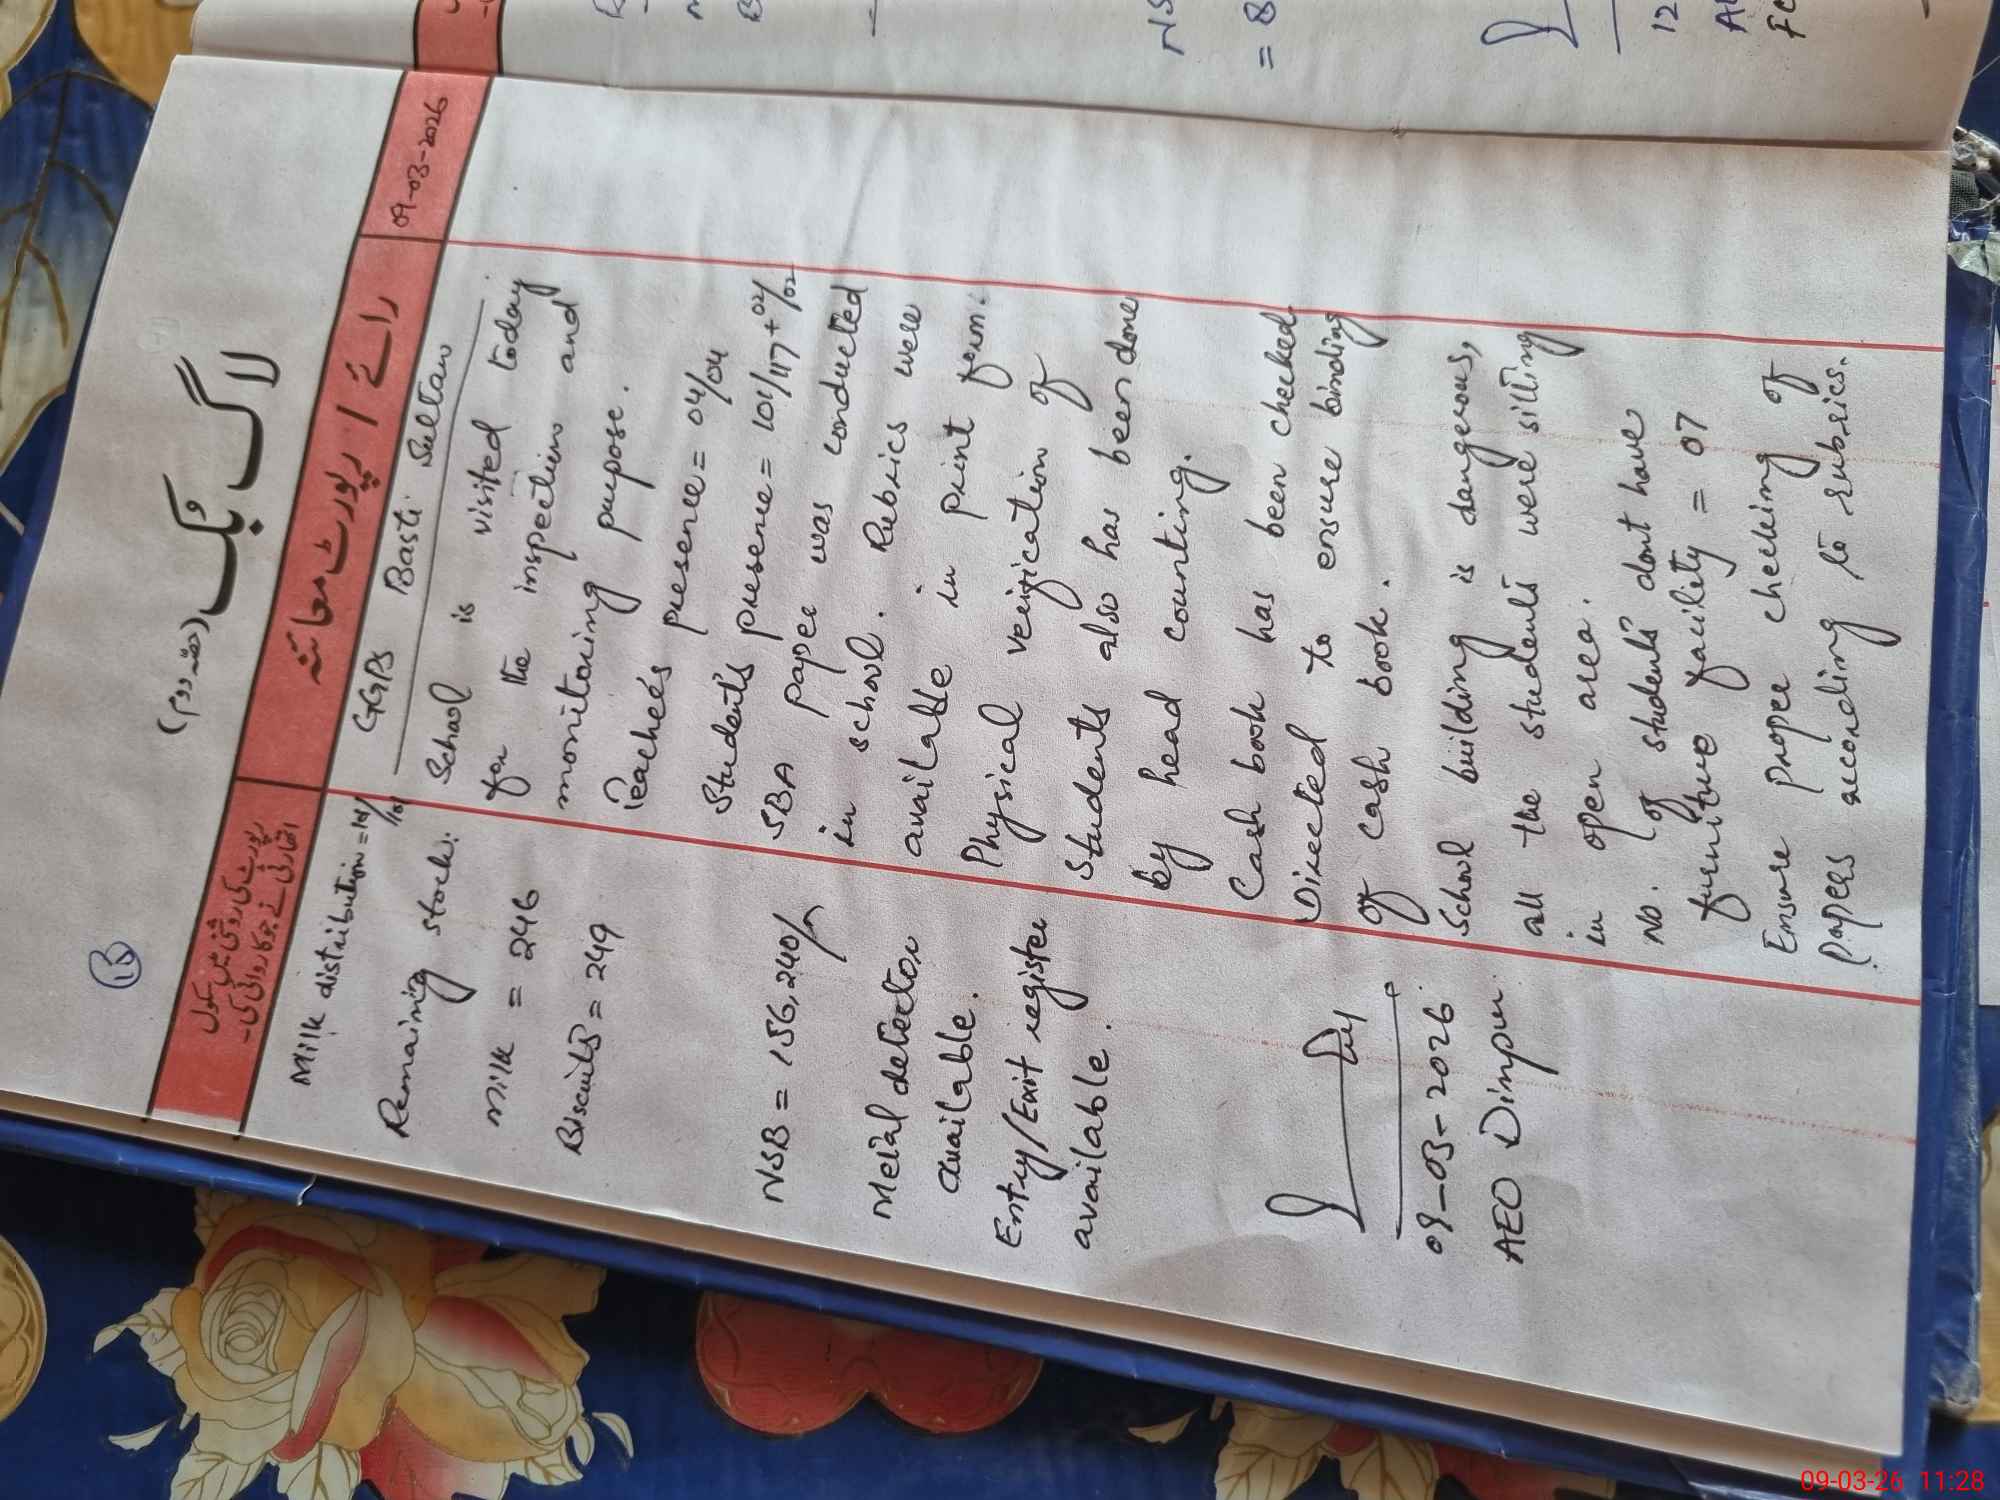 13
لاگ بُک (حصّہ دوم)
09-03-2026
رائے / رپورٹ معائنہ
رپورٹ کی روشنی میں سکول
اتھارٹی نے جو کاروائی کی۔
GGPS Basti Sultan
School is visited today
for the inspection and
monitoring purpose.
Teachers presence = 04/04
Students presence = 101/117 + 02/02
SBA paper was conducted
in school. Rubrics were
available in print form.
Physical verification of
Students also has been done
by head counting.
Cash book has been checked.
Directed to ensure binding
of cash book.
School building is dangerous,
all the students were sitting
in open area.
No. of students dont have
furniture facility = 07
Ensure proper checking of
papers according to rubrics.
Milk distribution = 101/101
Remaining stock:
Milk = 246
Biscuits = 249
NSB = 156,240/-
Metal detector
available.
Entry/Exit register
available.
09-03-2026
AEO Dinpur
NS
= 8
12
09-03-26 11:28